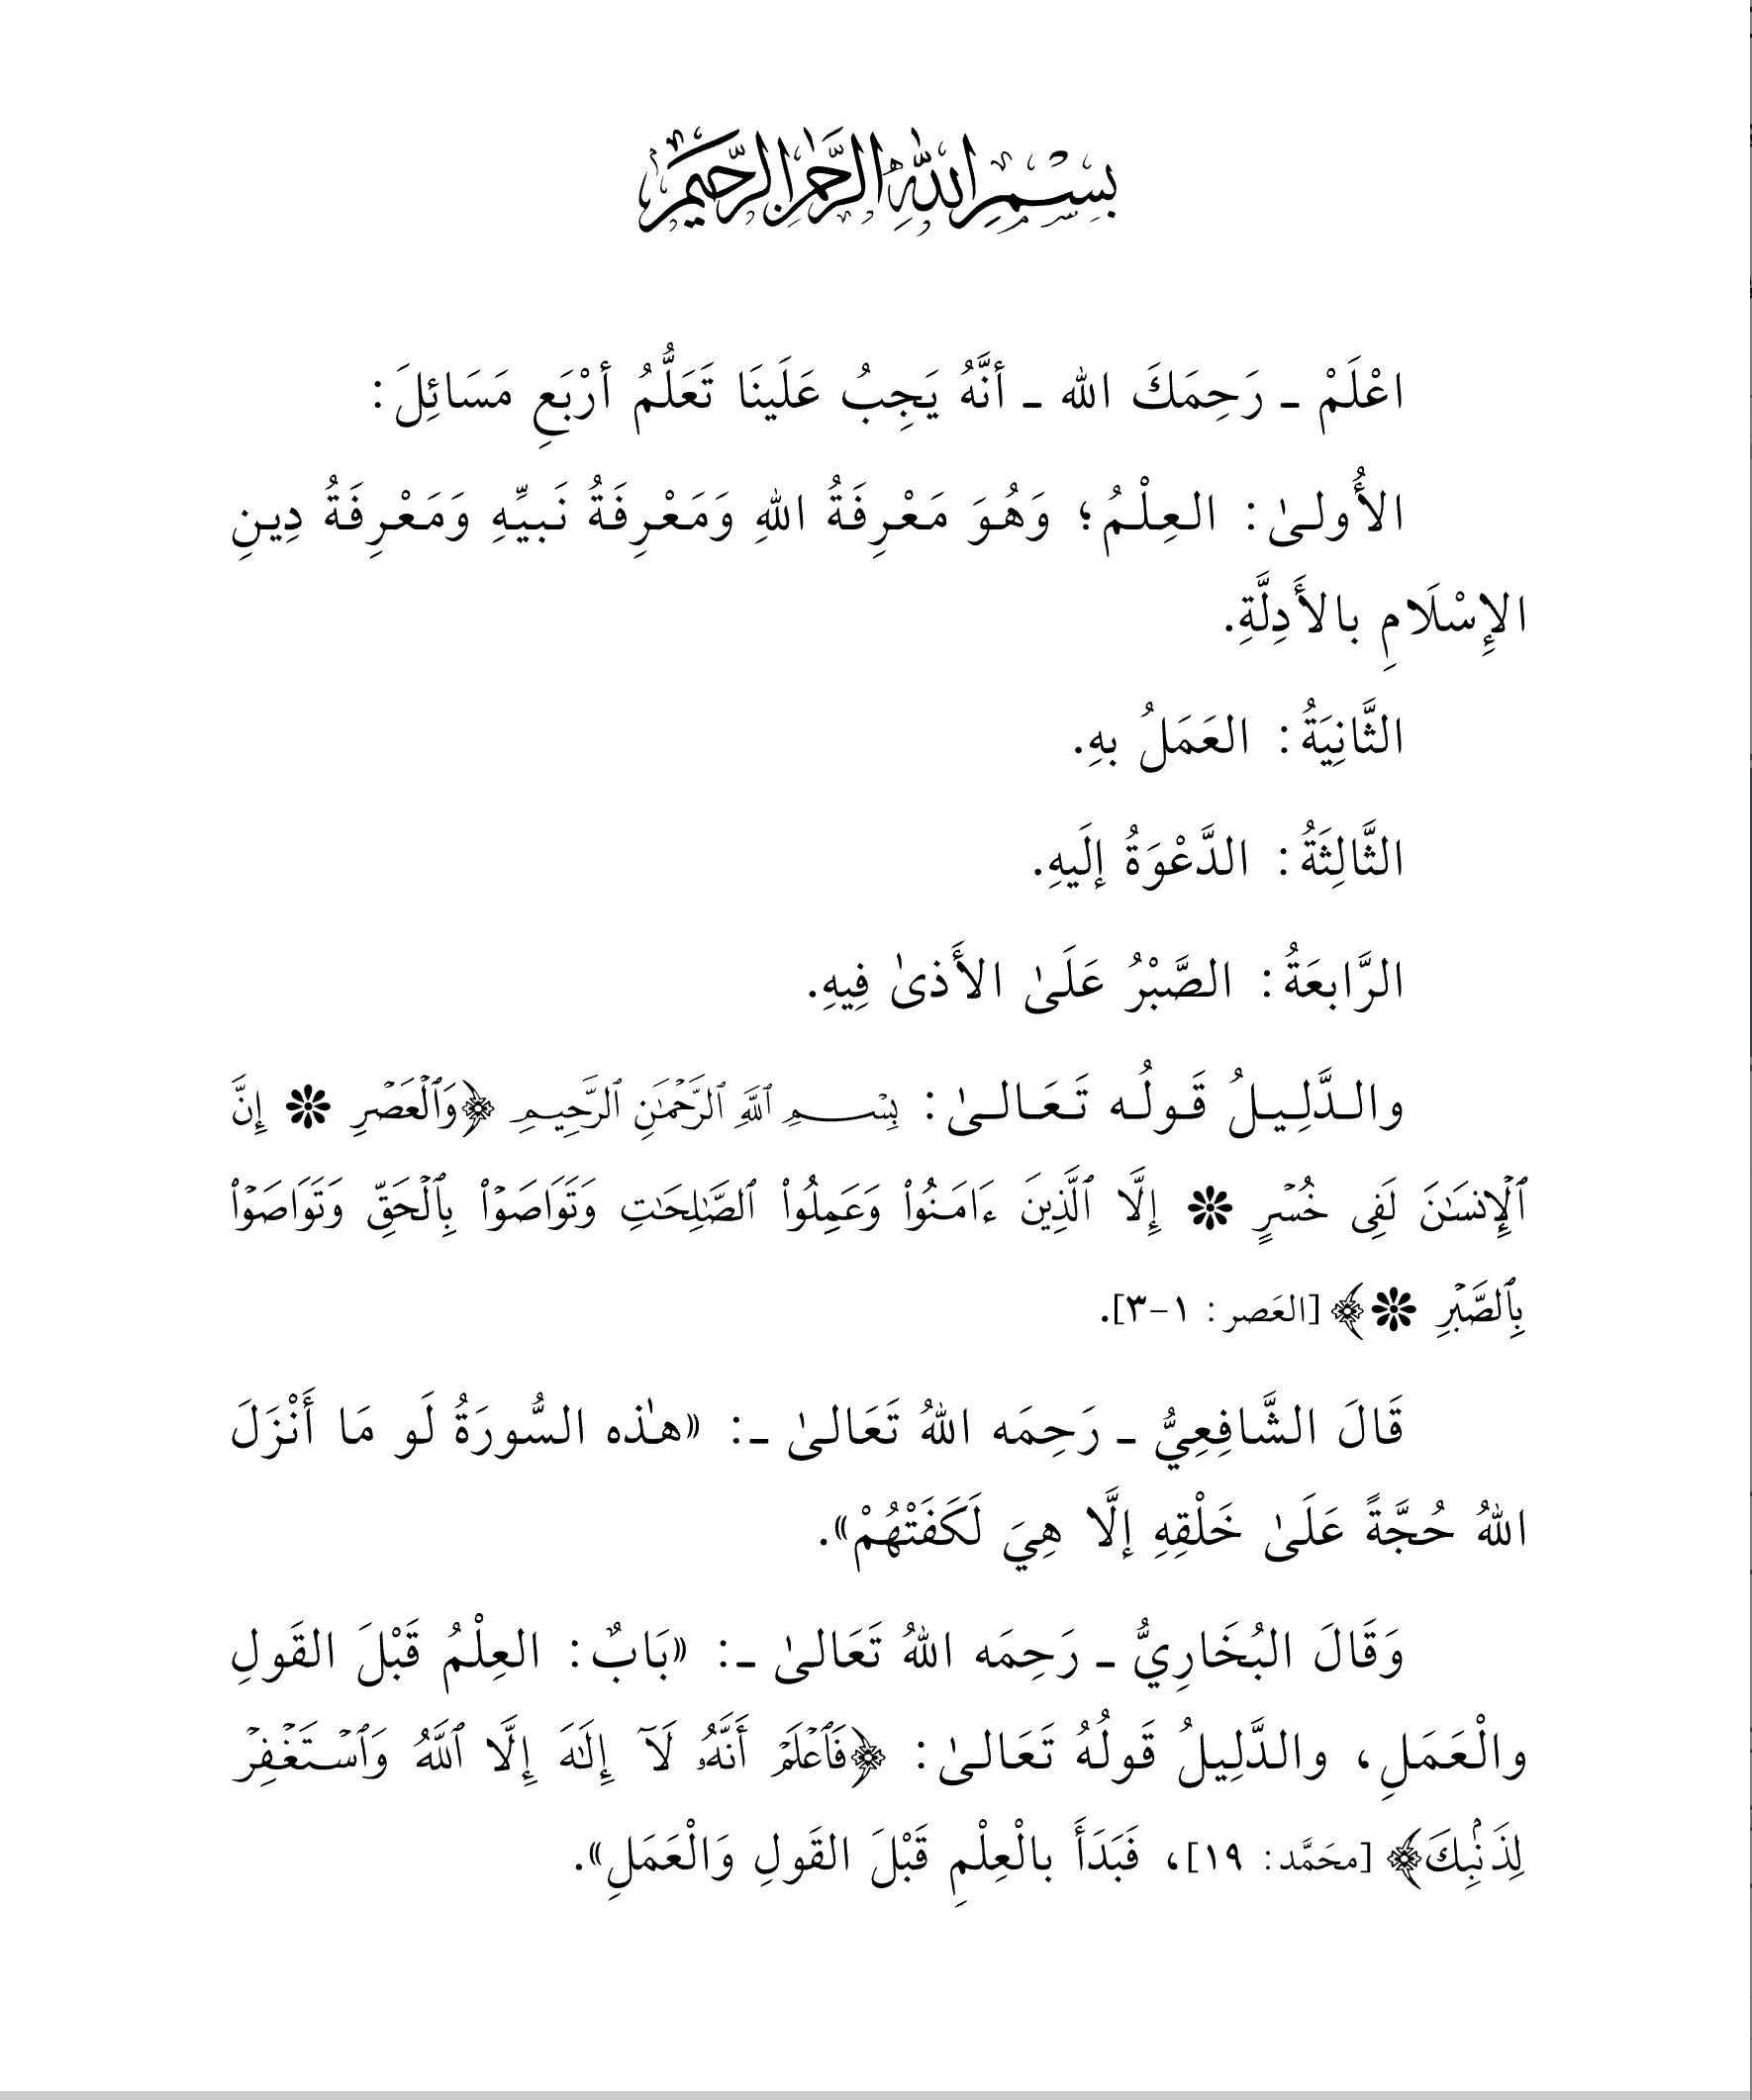 بِسْمِ اللهِ الرَّحْمٰنِ الرَّحِيمِ
اعْلَمْ ـ رَحِمَكَ الله ـ أنَّهُ يَجِبُ عَلَينَا تَعَلُّمُ أرْبَعِ مَسَائِلَ:
الأُولىٰ: العِلْمُ؛ وَهُوَ مَعْرِفَةُ اللهِ وَمَعْرِفَةُ نَبيِّهِ وَمَعْرِفَةُ دِينِ
الإِسْلَامِ بالأَدِلَّةِ.
الثَّانِيَةُ: العَمَلُ بهِ.
الثَّالِثَةُ: الدَّعْوَةُ إلَيهِ.
الرَّابعَةُ: الصَّبْرُ عَلَىٰ الأَذىٰ فِيهِ.
والدَّلِيلُ قَولُه تَعَالىٰ: بِسۡمِ ٱللَّهِ ٱلرَّحۡمَٰنِ ٱلرَّحِيمِ ﴿وَٱلۡعَصۡرِ ❇ إِنَّ
ٱلۡإِنسَٰنَ لَفِى خُسۡرٍ ❇ إِلَّا ٱلَّذِينَ ءَامَنُواْ وَعَمِلُواْ ٱلصَّٰلِحَٰتِ وَتَوَاصَوۡاْ بِٱلۡحَقِّ وَتَوَاصَوۡاْ
بِٱلصَّبۡرِ ❇﴾ [العَصر: ١-٣].
قَالَ الشَّافِعِيُّ ـ رَحِمَه اللهُ تَعَالىٰ ـ: «هـٰذه السُّورَةُ لَو مَا أَنْزَلَ
اللهُ حُجَّةً عَلَىٰ خَلْقِهِ إلَّا هِيَ لَكَفَتْهُمْ».
وَقَالَ البُخَارِيُّ ـ رَحِمَه اللهُ تَعَالىٰ ـ: «بَابٌ: العِلْمُ قَبْلَ القَولِ
والْعَمَلِ، والدَّلِيلُ قَولُهُ تَعَالىٰ: ﴿فَٱعۡلَمۡ أَنَّهُۥ لَآ إِلَٰهَ إِلَّا ٱللَّهُ وَٱسۡتَغۡفِرۡ
لِذَنۢبِكَ﴾ [محَمَّد: ١٩]، فَبَدَأَ بالْعِلْمِ قَبْلَ القَولِ وَالْعَمَلِ».